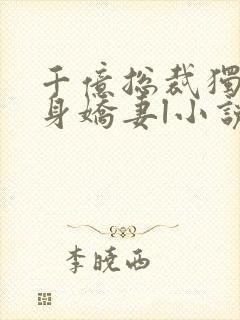 千億總裁獨
身嬌妻1小說
李曉西